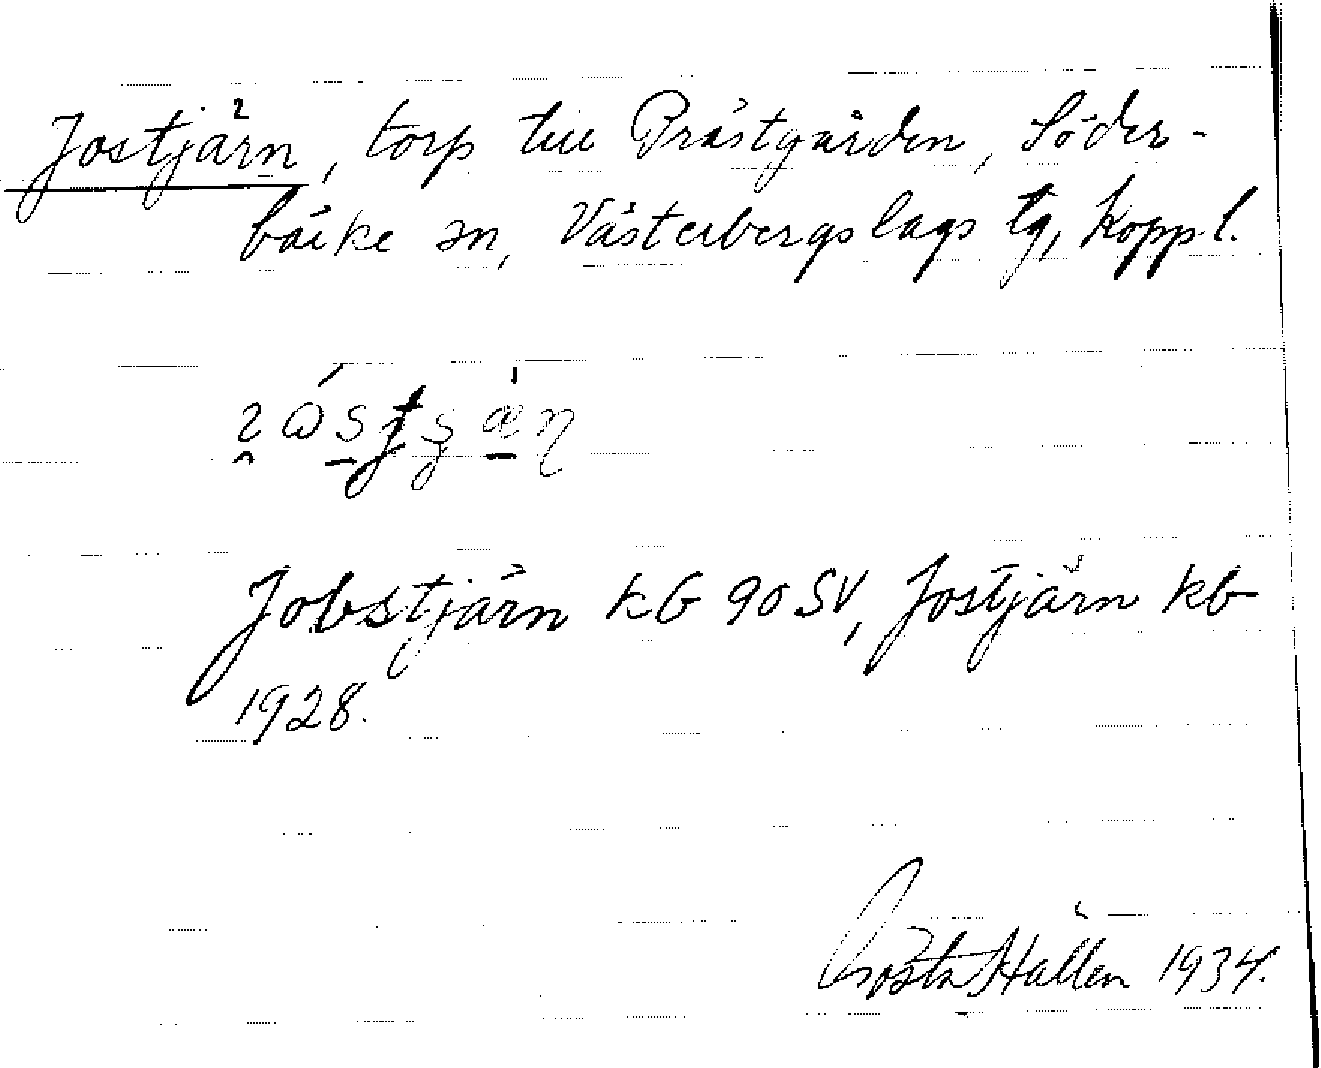 Jostjärn, torp till Prästgården, Söder-
bärke sn, Västerbergslags tg, Koppl.
Jobstjärn kb 90 SV, Jostjärn kb
1928.
Gösta Hallén 1934.